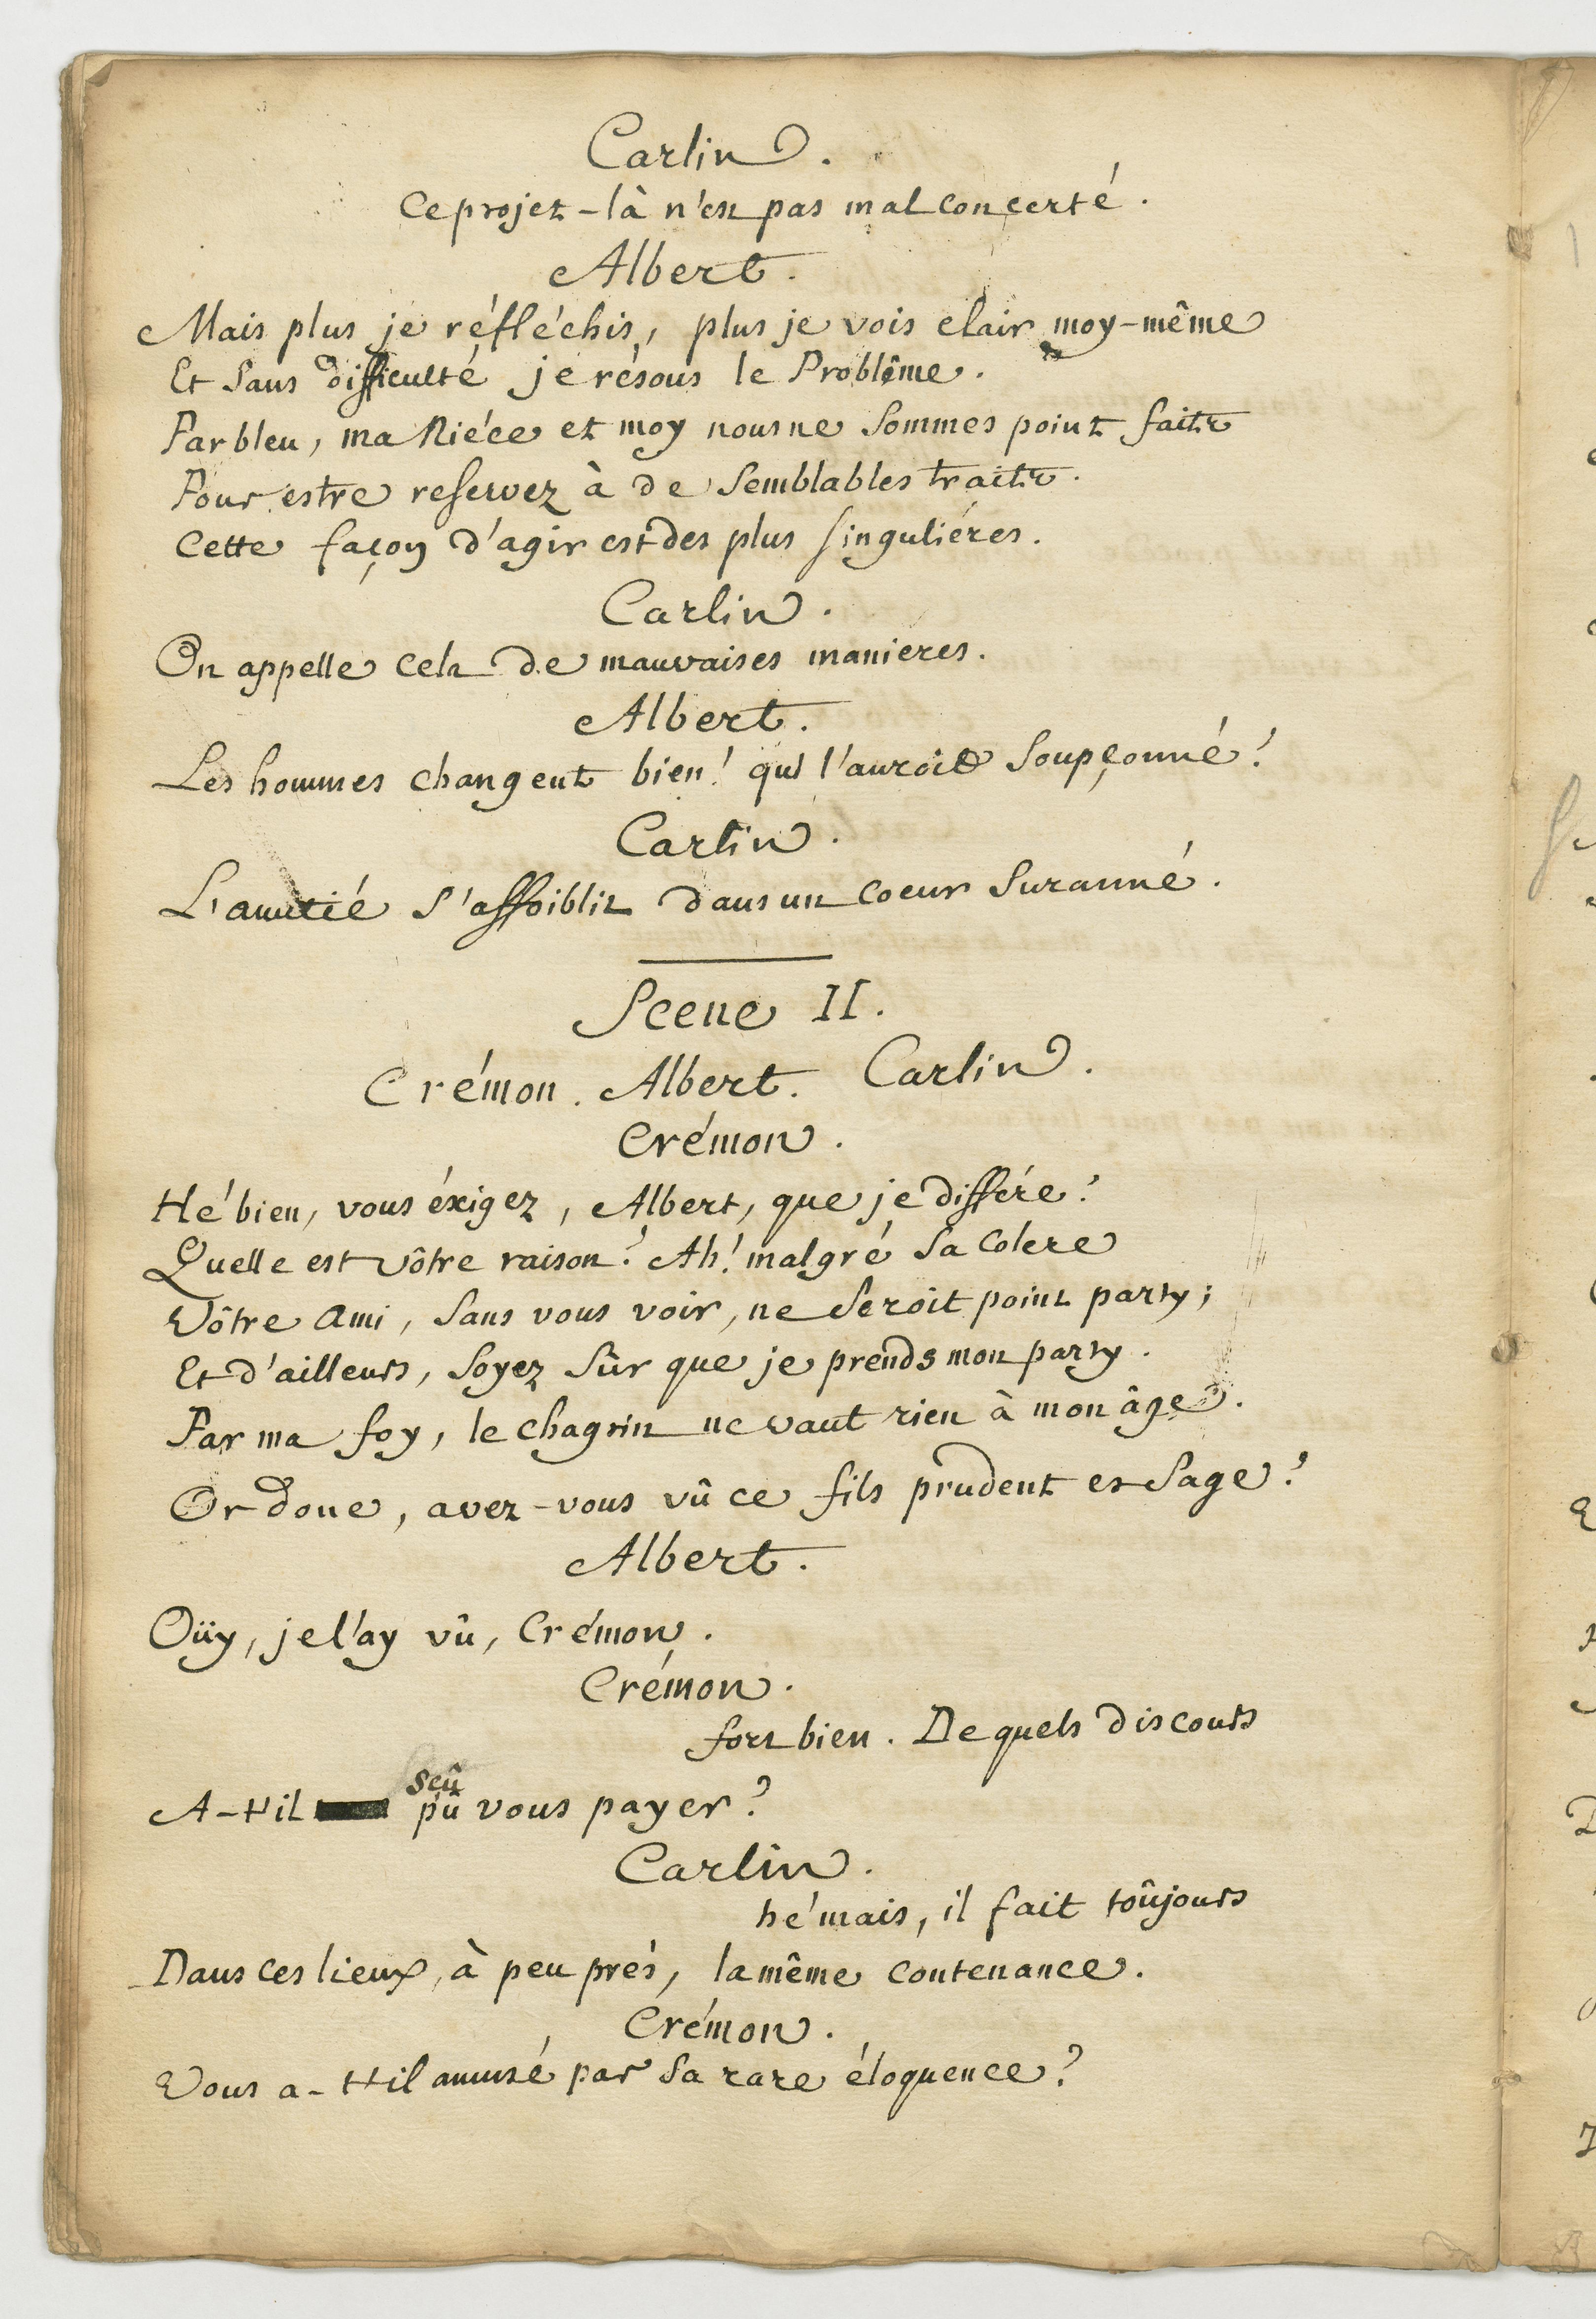 Carlin.
Ce projet-là n'est pas mal concerté.
Albert.
Mais plus je réfléchis, plus je vois clair moy-même
Et sans difficulté je résous le Problême.
Parbleu, ma Niéce et moy nous ne sommes point faits
Pour estre reservez à de semblables traits.
Cette façon d'agir est des plus singuliéres.
Carlin.
On appelle cela de mauvaises manieres.
Albert.
Les hommes changent bien! qui l'auroit soupçonné?
Carlin.
L'amitié s'affoiblit dans un coeur suranné.
Scene II.
Crémon. Albert. Carlin.
Crémon.
Hé bien, vous éxigez, Albert, que je différe?
Quelle est vôtre raison? Ah! malgré sa colere
Vôtre ami, sans vous voir, ne seroit point party;
Et d'ailleurs, soyez sûr que je prends mon party.
Par ma foy, le chagrin ne vaut rien à mon âge.
Or donc, avez-vous vû ce fils prudent et sage?
Albert.
Oüy, je l'ay vû, Crémon.
Crémon.
fort bien. De quels discours
sçû
A-t'il pû vous payer?
Carlin.
hé mais, il fait toûjours
Dans ces lieux, à peu prés, la même contenance.
Crémon.
Vous a-t'il amusé par sa rare éloquence?